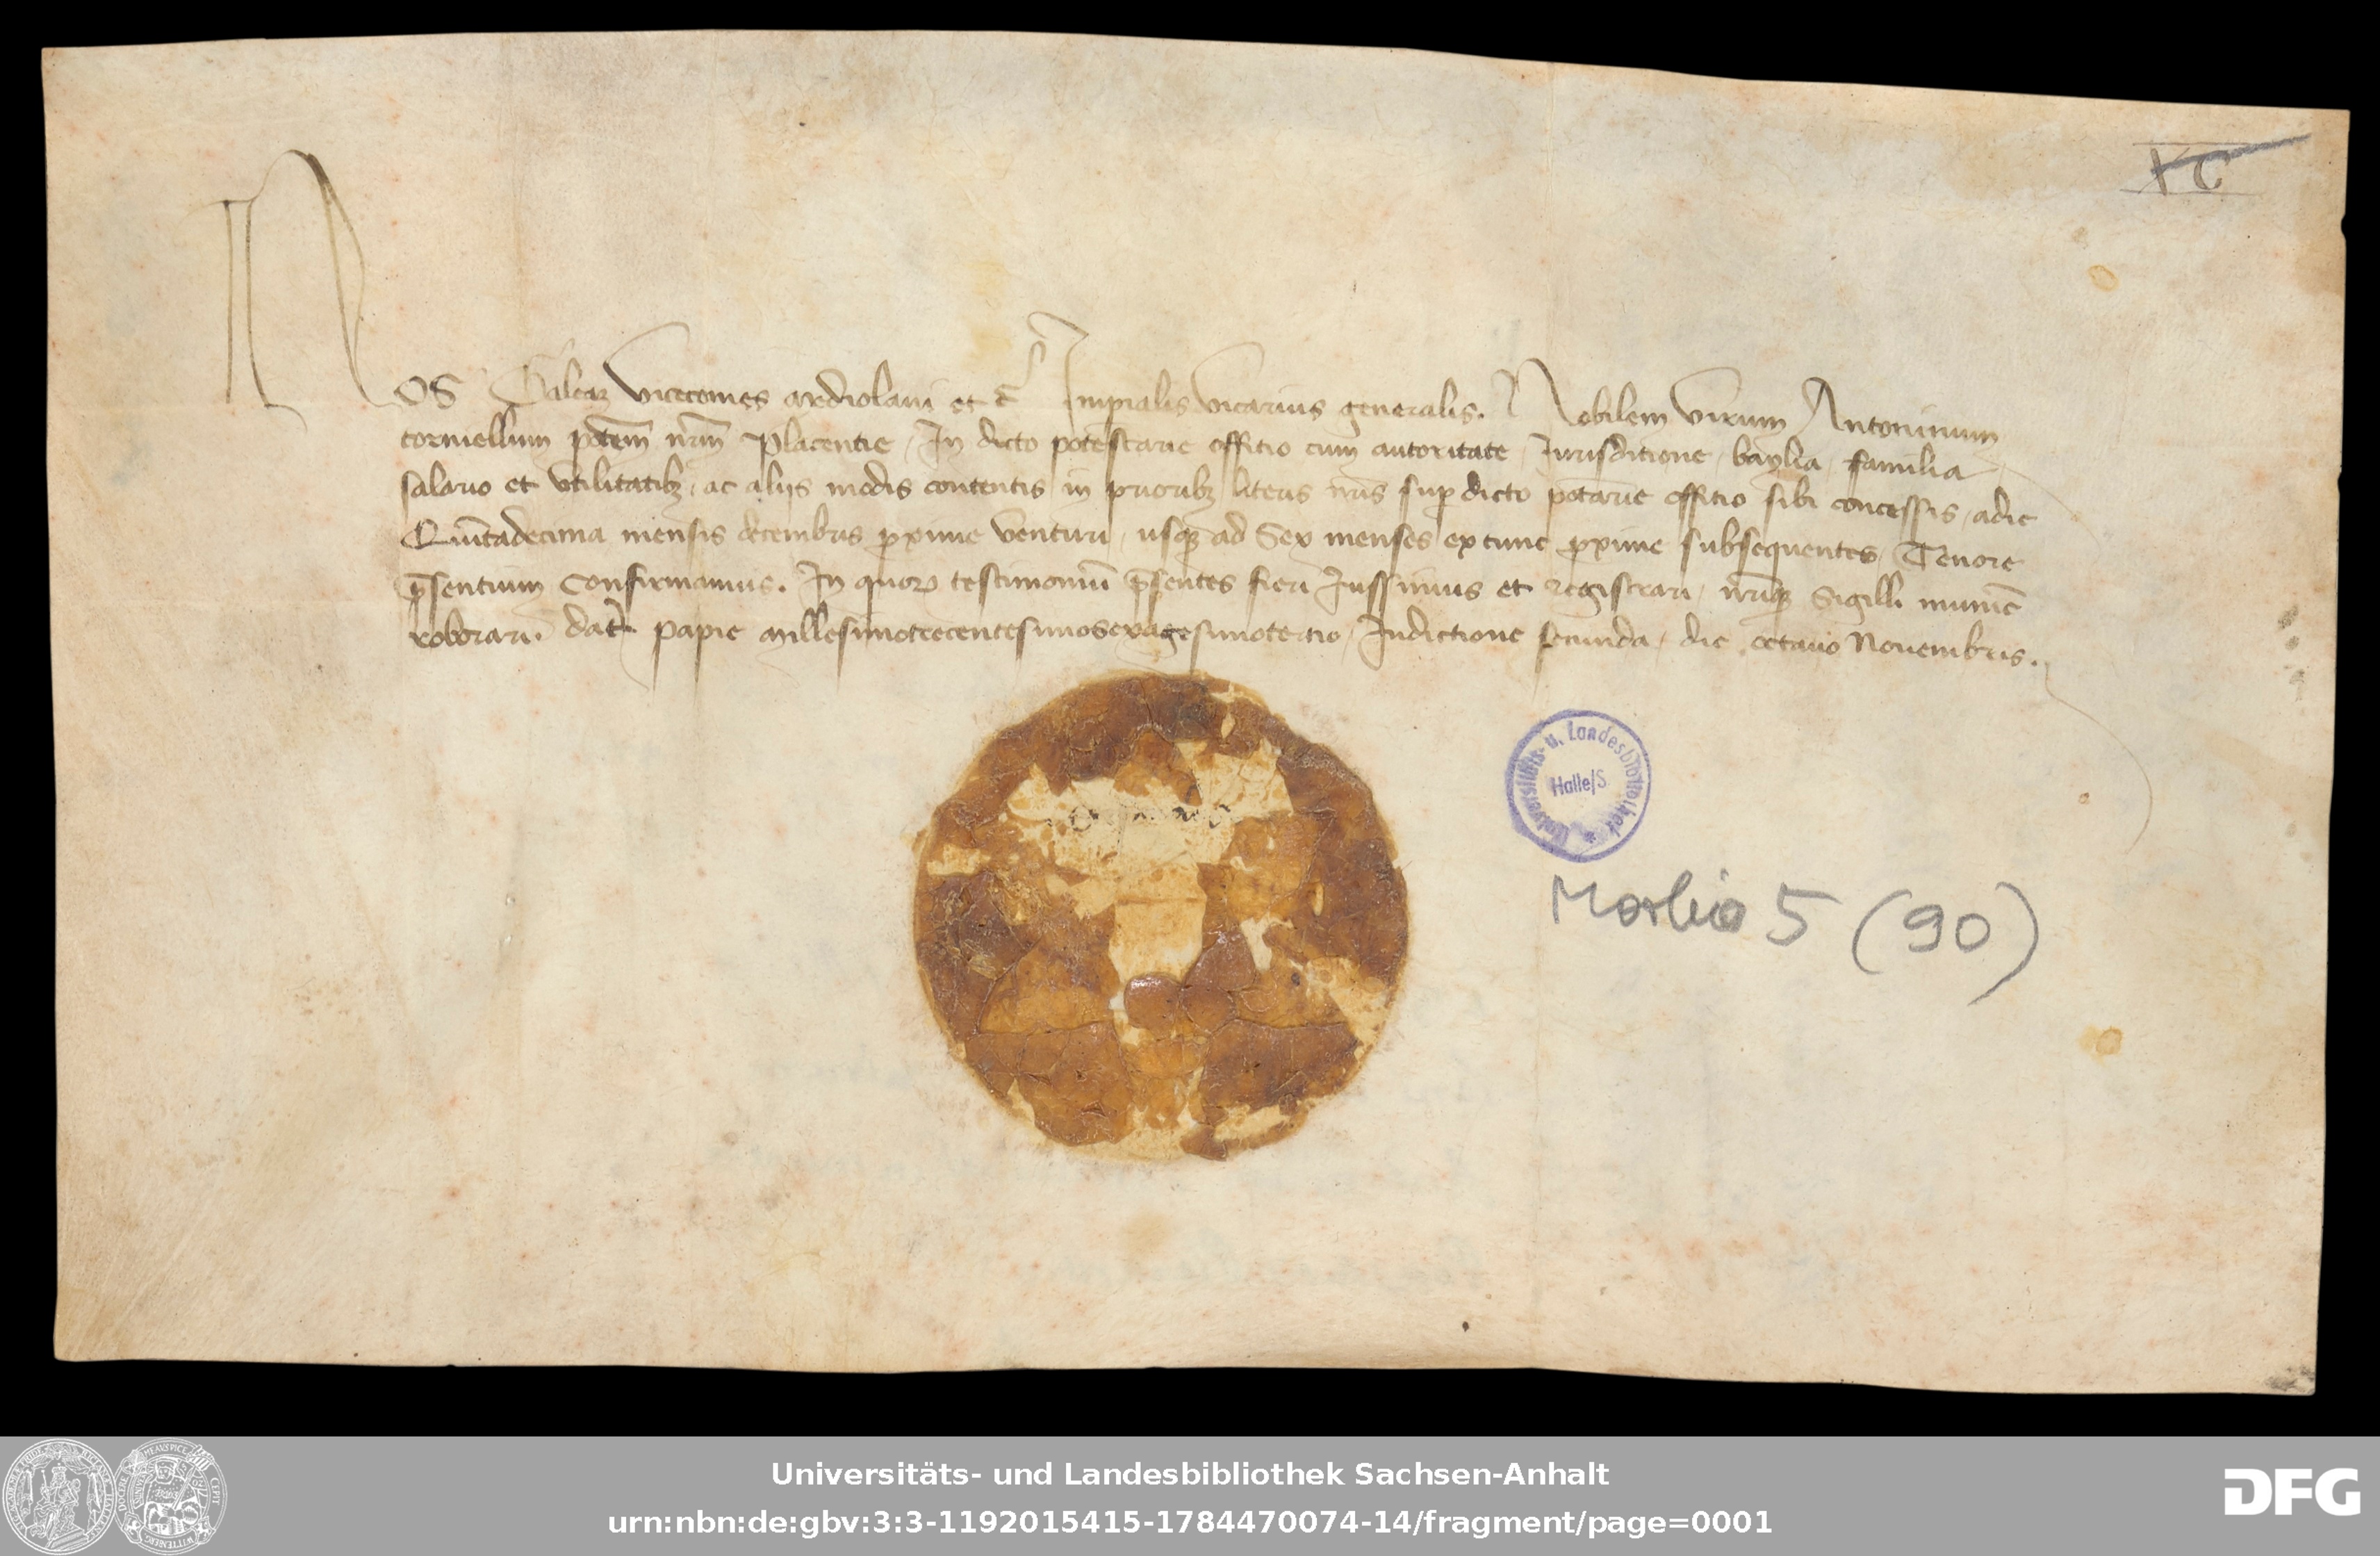 NOS Galeaz Vicecomes Mediolani et c̄ Imperialis Vicarius generalis. Nobilem Virum Antonium
torniellum potem̄ nr̄m Placentie, In dicto potestarie offitio cum autoritate, Jurisditione, baylia, familia
salario et vtilitatibꝫ, ac alijs modis contentis in prioribꝫ literis nr̄is suꝑ dicto potarie offitio sibi concessis, adie
Quintadecima mensis decembris ꝓxime venturi, usqꝫ ad Sex menses extunc ꝓxime subsequentes, Tenore
p̄sentium Confirmamus. In quoꝝ testimoniū p̄sentes fieri Jussimus et registrari, nr̄iqꝫ Sigilli munīe
roborari. dat̄ papie Millesimotrecentesimosexagesimotertio, Indictione secunda, die octauo Nouembris.
XC
Universitäts- u. Landesbibliothek
Halle/S.
Morbio 5 (90)
Universitäts- und Landesbibliothek Sachsen-Anhalt
urn:nbn:de:gbv:3:3-1192015415-1784470074-14/fragment/page=0001
DFG